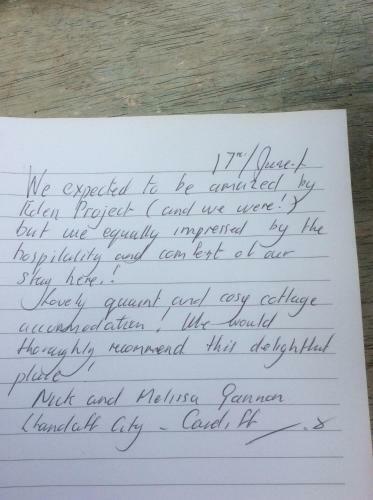 17th/
We expected to be amazed by
Eden Project (and we were!)
but we equally impressed by the
hospitality and comfort of our
stay here!
Lovely quaint and cosy cottage
accommodation! We would
thoroughly recommend this delightful
place!
Nick and Melissa Gannon
Llandaff City - Cardiff